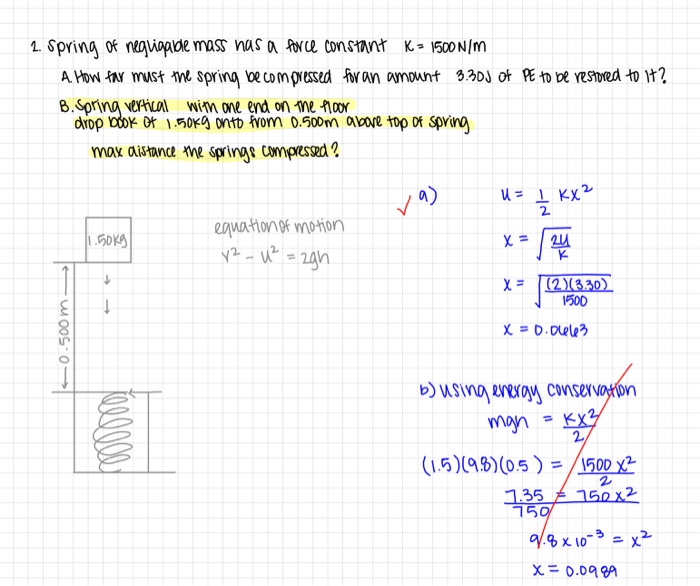 2. Spring of negligable mass has a force constant K = 1500 N/m
A. How far must the spring be compressed for an amount 3.30J of PE to be restored to it?
B. Spring vertical with one end on the floor
drop book of 1.50kg onto from 0.500m above top of spring
max distance the springs compressed?
1.50kg
0.500m
equation of motion
v² - u² = 2gh
✓ a)
U = 1/2 Kx²
x = √(2U/K)
x = √((2)(3.30)/1500)
x = 0.0663
b) using energy conservation
mgh = Kx²/2
(1.5)(9.8)(0.5) = 1500 x²/2
7.35/750 = 750x²
9.8 x 10⁻³ = x²
x = 0.0989